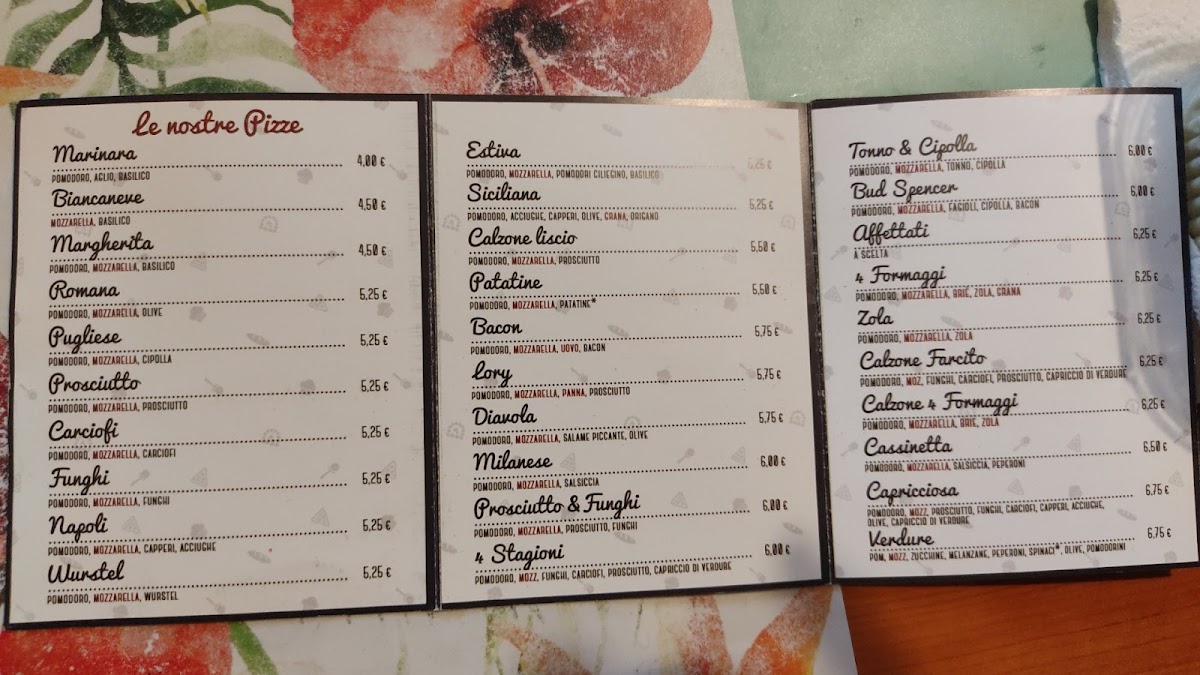 Le nostre Pizze
Marinara 4,00 €
POMODORO, AGLIO, BASILICO
Biancaneve 4,50 €
MOZZARELLA, BASILICO
Margherita 4,50 €
POMODORO, MOZZARELLA, BASILICO
Romana 5,25 €
POMODORO, MOZZARELLA, OLIVE
Pugliese 5,25 €
POMODORO, MOZZARELLA, CIPOLLA
Prosciutto 5,25 €
POMODORO, MOZZARELLA, PROSCIUTTO
Carciofi 5,25 €
POMODORO, MOZZARELLA, CARCIOFI
Funghi 5,25 €
POMODORO, MOZZARELLA, FUNGHI
Napoli 5,25 €
POMODORO, MOZZARELLA, CAPPERI, ACCIUGHE
Wurstel 5,25 €
POMODORO, MOZZARELLA, WURSTEL
Estiva 5,25 €
POMODORO, MOZZARELLA, POMODORI CILIEGINO, BASILICO
Siciliana 5,25 €
POMODORO, ACCIUGHE, CAPPERI, OLIVE, GRANA, ORIGANO
Calzone liscio 5,50 €
POMODORO, MOZZARELLA, PROSCIUTTO
Patatine 5,50 €
POMODORO, MOZZARELLA, PATATINE*
Bacon 5,75 €
POMODORO, MOZZARELLA, UOVO, BACON
Lory 5,75 €
POMODORO, MOZZARELLA, PANNA, PROSCIUTTO
Diavola 5,75 €
POMODORO, MOZZARELLA, SALAME PICCANTE, OLIVE
Milanese 6,00 €
POMODORO, MOZZARELLA, SALSICCIA
Prosciutto & Funghi 6,00 €
POMODORO, MOZZARELLA, PROSCIUTTO, FUNGHI
4 Stagioni 6,00 €
POMODORO, MOZZ, FUNGHI, CARCIOFI, PROSCIUTTO, CAPRICCIO DI VERDURE
Tonno & Cipolla 6,00 €
POMODORO, MOZZARELLA, TONNO, CIPOLLA
Bud Spencer 6,00 €
POMODORO, MOZZARELLA, FAGIOLI, CIPOLLA, BACON
Affettati 6,25 €
A SCELTA
4 Formaggi 6,25 €
POMODORO, MOZZARELLA, BRIE, ZOLA, GRANA
Zola 6,25 €
POMODORO, MOZZARELLA, ZOLA
Calzone Farcito 6,25 €
POMODORO, MOZ, FUNGHI, CARCIOFI, PROSCIUTTO, CAPRICCIO DI VERDURE
Calzone 4 Formaggi 6,25 €
POMODORO, MOZZARELLA, BRIE, ZOLA
Cassinetta 6,50 €
POMODORO, MOZZARELLA, SALSICCIA, PEPERONI
Capricciosa 6,75 €
POMODORO, MOZZ, PROSCIUTTO, FUNGHI, CARCIOFI, CAPPERI, ACCIUGHE,
OLIVE, CAPRICCIO DI VERDURE
Verdure 6,75 €
POM, MOZZ, ZUCCHINE, MELANZANE, PEPERONI, SPINACI*, OLIVE, POMODORINI